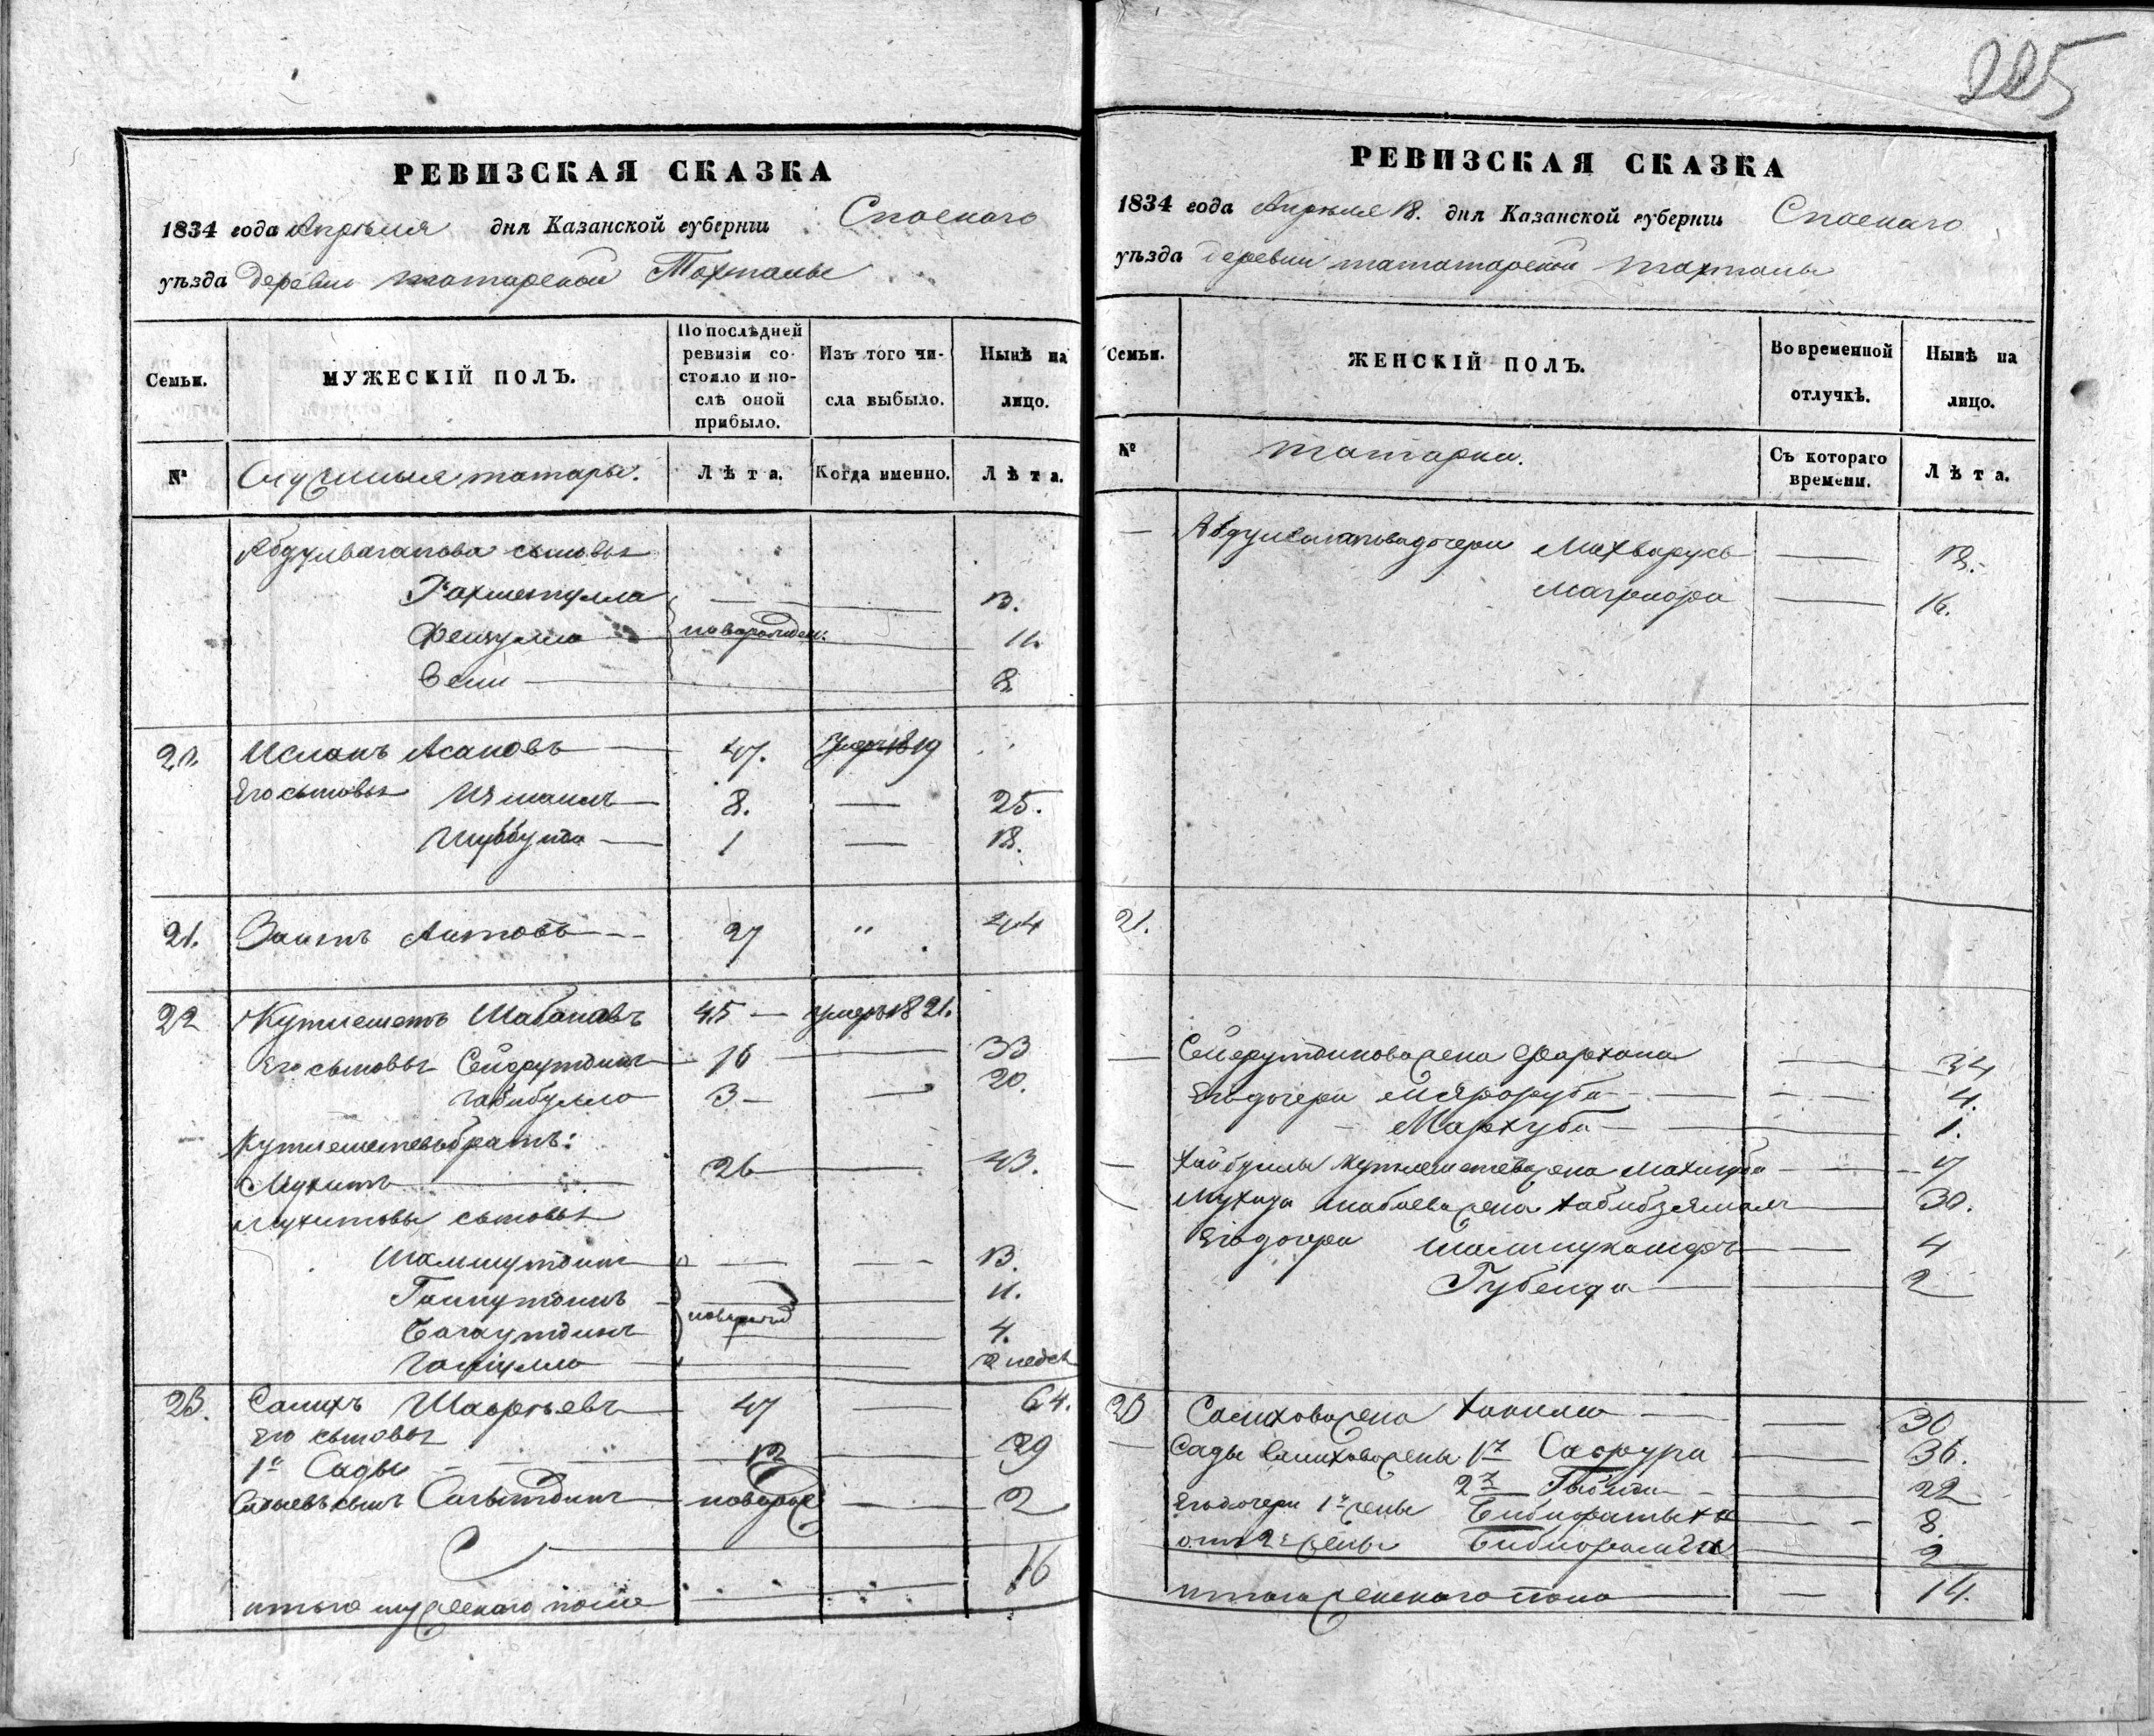 225
РЕВИЗСКАЯ СКАЗКА
1834 года Апреля дня Казанской губернiи Спаскаго
уѣзда деревни татарской Тахталы
Семьи.
МУЖЕСКIЙ ПОЛЪ.
По послѣдней ревизiи состояло и послѣ оной прибыло.
Изъ того числа выбыло.
Нынѣ на лицо.
№
Служилыя татары.
Лѣта.
Когда именно.
Лѣта.
Абдулвагапова сыновья
Рахметулла 13.
Феизулла новорожден: 11.
Вели 8
20. Исланъ Асановъ 47. умер 1819
Его сыновья Измаилъ 8. 25.
1 18.
21. Заитъ Аитовъ 27 " 44
22 Кутлеметь Шабановъ 45 умеръ 1821.
Его сыновья Сейфутдинъ 16 33
Хабибулла 3 20.
Кутлеметевъ братъ:
Мухитъ 26 43.
Мухитовы сыновья
Шамшутдинъ 13.
Гаинутдинъ 11.
Багаутдинъ новорожд 4.
2 недел
23. Салихъ 47 64.
Его сыновья
1й Сады 12 29
Садыевъ сынъ новорож 2
16
итого мужескаго пола
РЕВИЗСКАЯ СКАЗКА
1834 года Апреля 18. дня Казанской губернiи Спаскаго
уѣзда деревни тататарской тахталы
Семьи.
ЖЕНСКIЙ ПОЛЪ.
Во временной отлучкѣ.
Нынѣ на лицо.
№
татарки.
Съ котораго времени.
Лѣта.
Абдулвагаповадочери 18.
16.
21.
Сейфутдиноважена Фархана 34
Его дочери 4.
Мархуба 1.
Хайбуллы Кутлеметева жена 17
Мухита жена Хабибзямалъ 30.
Его дочери 4
Губейда 2
23 Салиховажена Халила 30
Сады Салихова жены 1я 36.
2я 22
Его дочери 1й жены 8.
от 2й жены 2
итого женскаго пола 14.